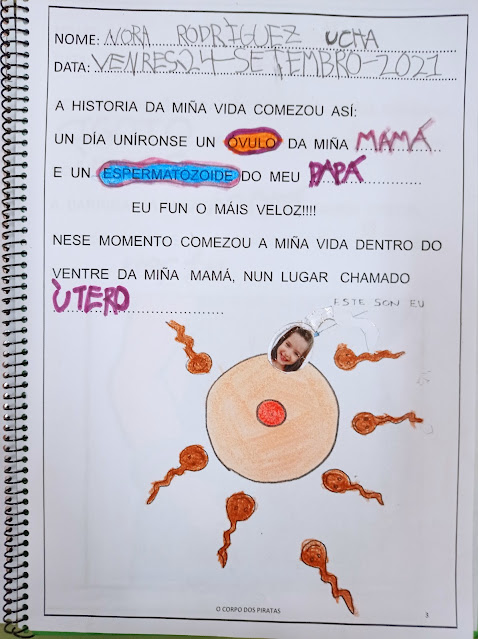 NOME: NORA RODRÍGUEZ UCHA
DATA: VENRES 24-SETEMBRO-2021
A HISTORIA DA MIÑA VIDA COMEZOU ASÍ:
UN DÍA UNÍRONSE UN ÓVULO DA MIÑA MAMÁ
E UN ESPERMATOZOIDE DO MEU PAPÁ
EU FUN O MÁIS VELOZ!!!!
NESE MOMENTO COMEZOU A MIÑA VIDA DENTRO DO
VENTRE DA MIÑA MAMÁ, NUN LUGAR CHAMADO
ÚTERO
ESTE SON EU
O CORPO DOS PIRATAS
3